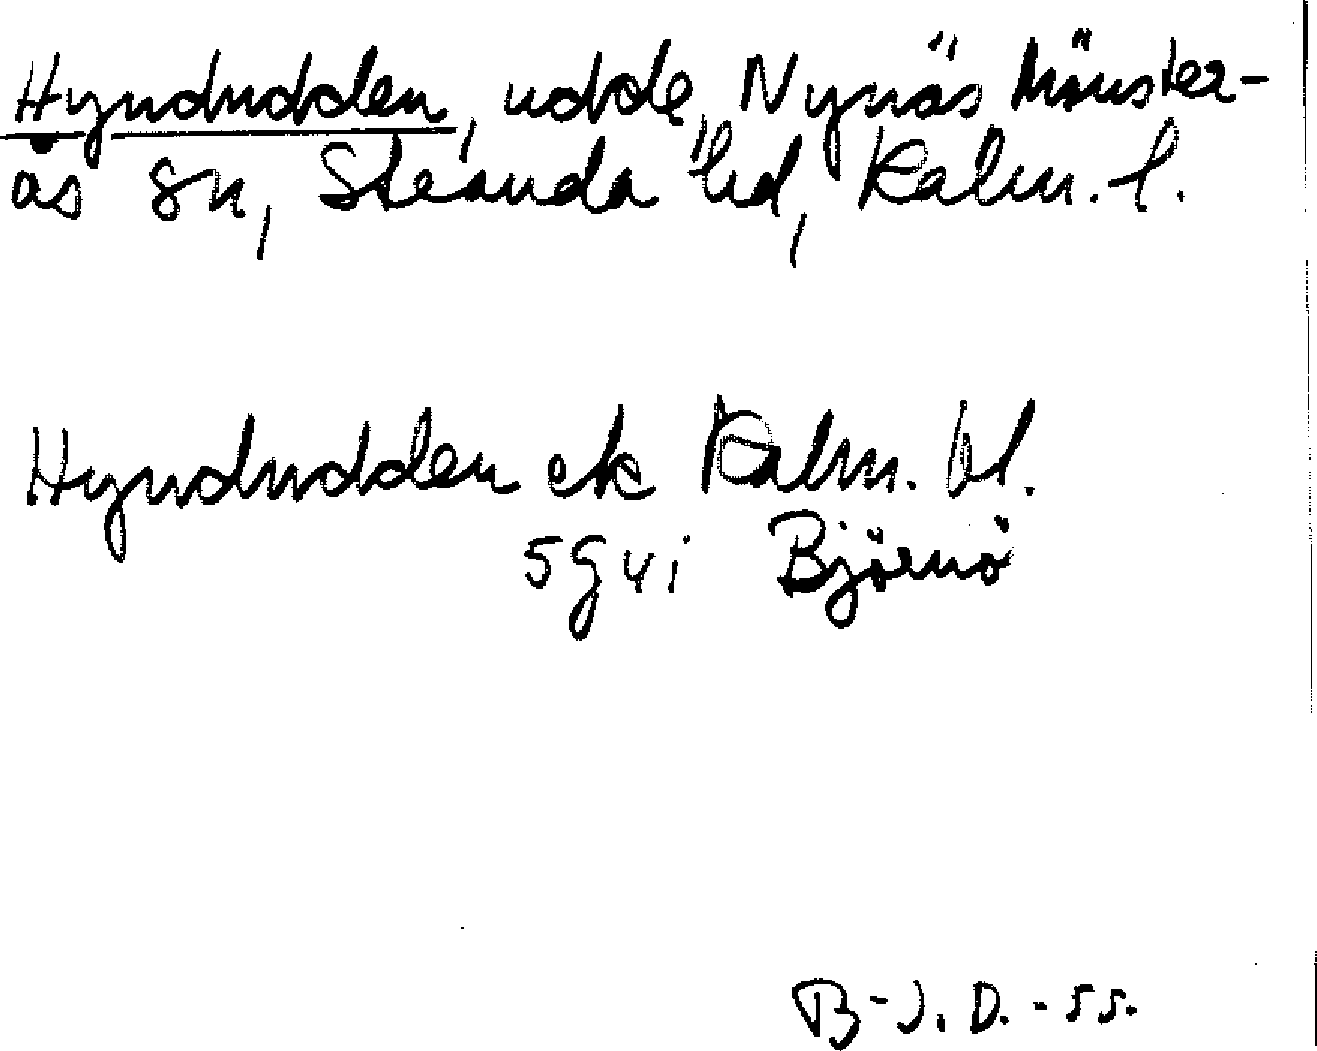 Hyndudden, udde, Nynäs Mönster-
ås sn, Stranda hd, Kalm. l.
Hyndudden ek Kalm. bl.
5G4i Björnö
B-J. D. - 55.